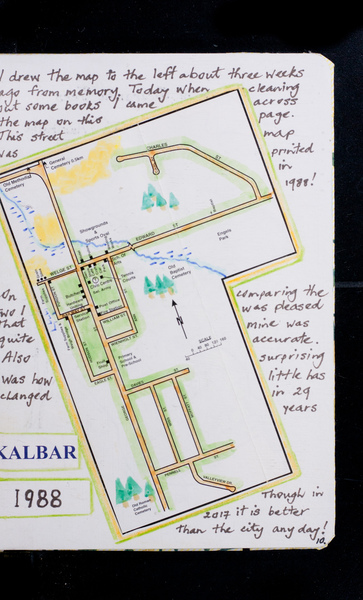 I drew the map to the left about three weeks
ago from memory. Today when cleaning
out some books I came across
the map on this page.
This street map
was printed
in
1988!
General
Cemetery 0.5km
Old Methodist
Cemetery
CHARLES
ST
Showgrounds
&
Sports Oval
EDWARD ST
Engels
Park
WELGE ST
Old
Baptist
Cemetery
Tennis
Courts
Post Office
WILLIAM ST
N
SCALE
Primary
School &
Pre-School
VALLEYVIEW DR
Catholic
Cemetery
On comparing the
two I was pleased
that mine was
quite accurate.
Also surprising
was how little has
changed in 29
years
KALBAR
1988
Though in
2017 it is better
than the city any day!
10.